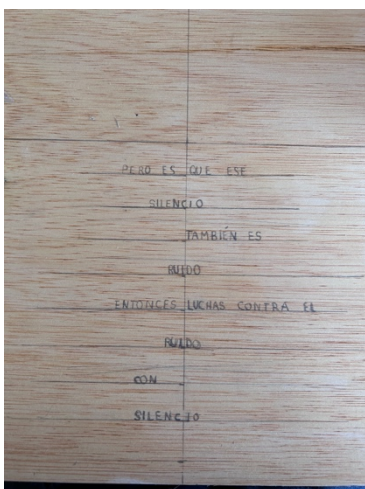 PERO ES QUE ESE
SILENCIO
TAMBIÉN ES
RUIDO
ENTONCES LUCHAS CONTRA EL
RUIDO
CON
SILENCIO